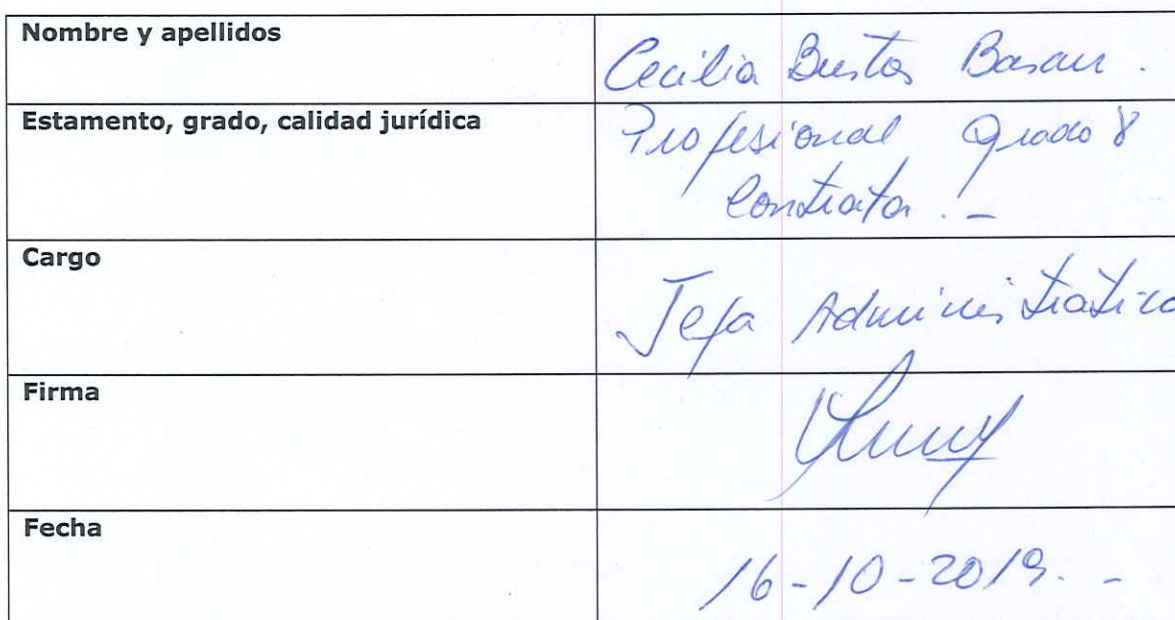 Nombre y apellidos
Cecilia Bustos Basaur.
Estamento, grado, calidad jurídica
Profesional Grado 8
Contrata.-
Cargo
Jefa Administrativa
Firma
Fecha
16-10-2019.-